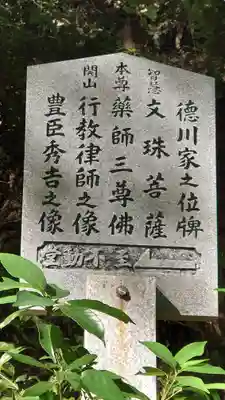 徳川家之位牌
智慧 文珠菩薩
本尊 薬師三尊佛
開山 行教律師之像
豊臣秀吉之像
堂動不王